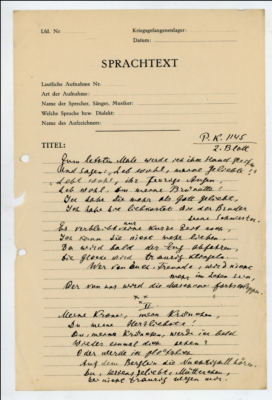 Lfd. Nr
Kriegsgefangenenlager:
Datum:
SPRACHTEXT
Lautliche Aufnahme Nr.
Art der Aufnahme:
Name des Sprecher, Sänger, Musiker:
Welche Sprache bzw. Dialekt:
Name des Aufzeichners:
P.K. 1145
2. Blatt
TITEL:
Zum letzten Male werde ich ihre Hand
und sagen: Leb wohl, meine Geliebte!
Lebt wohl, ihr feurige Augen,
Leb wohl du meine Brünette!
Ich habe die mehr als Gott geliebt,
Ich habe sie liebkost wie der Bruder
seine Schwester.
Es verbleibt nur kurze Zeit noch,
Ich kann sie nicht mehr lieben.
Da wird bald der Zug abfahren,
Die Glocke wird traurig
Wer von Euch, Freunde, wird nicht
mehr im Leben sein,
Der von uns wird die
x x
VI.
Meine Krone, mein Krönchen,
Du meine Herzliebste!
Du, meine Krönchen, werde ich bald
Wieder einmal dich sehen?
Oder werde ich
Auf dem Berglein die Nachtigall hören.
Du, herzgeliebtes Mütterchen,
sei nicht traurig wegen mir.